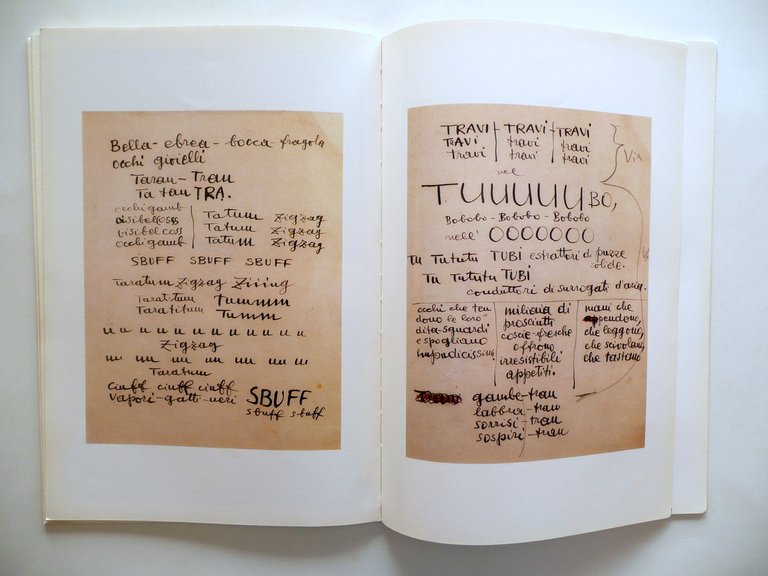 Bella - ebrea - bocca fragola
occhi gioielli
Taran - Tran
Ta tan TRA.
occhi gamb | Tatum zigzag
visibelloss | Tatum zigzag
visibel coss | Tatum zigzag
occhi gamb
SBUFF SBUFF SBUFF
Taratum Zigzag Ziiing
Taratitum Tummm
Taratitum Tumm
uu u u u u u u u u u u
Zigzag
uu uu uu uu uu uu uu
Taratum
ciuff ciuff ciuff
Vapori-gatti-neri SBUFF
sbuff sbuff
TRAVI | TRAVI | TRAVI
TRAVI | travi | travi
travi | travi | travi
nel
TUUUUUBO,
Bobobo - Bobobo - Bobobo
nell' OOOOOOO
Tu Tututu TUBI estrattori di puzze
solide.
Tu Tututu TUBI
conduttori di surrogati d'aria.
occhi che ten
dono le loro
dita-sguardi
e spogliano
impudicissimi
miliaia di
prosciutti
cosce-fresche
offrono
irresistibili
appetiti.
mani che
appendono,
che leggono,
che scivolano,
che tastano
gambe-tran
labbra-tran
sorrisi-tran
sospiri-tran